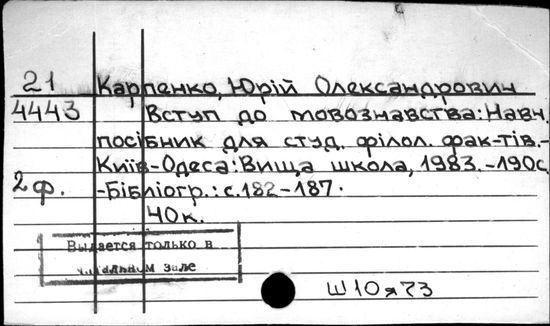 21 Карпенко, Юрій Олександрович
4443 Вступ до мовознавства: Навч.
посібник для студ. філол. фак-тів.-
Київ-Одеса: Вища школа, 1983.-190с.
2ф. -Бібліогр.: с.182-187.
40к.
Выдается только в
читальном зале
Ш10я73